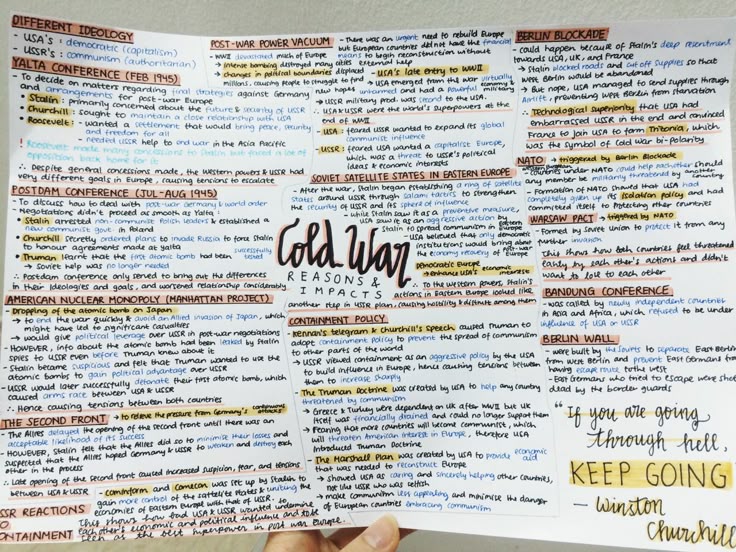 DIFFERENT IDEOLOGY
- USA's : democratic (capitalism)
- USSR's : communism (authoritarian)
YALTA CONFERENCE (FEB 1945)
- To decide on matters regarding final strategies against Germany
and arrangements for post-war Europe
• Stalin : primarily concerned about the future & security of USSR
• Churchill : sought to maintain a close relationship with USA
• Roosevelt : wanted a settlement that would bring peace, security
and freedom for all
- needed USSR help to end war in the Asia Pacific
! Roosevelt made many concessions to Stalin but faced a lot of
opposition back home for it
∴ Despite general concessions made, the western powers & USSR had
very different goals in Europe, causing tensions to escalate
POSTDAM CONFERENCE (JUL-AUG 1945)
- To discuss how to deal with post-war Germany & world order
- Negotiations didn't proceed as smooth as Yalta :
• Stalin arrested non-communist Polish leaders & established a
new communist govt. in Poland
• Churchill secretly ordered plans to invade Russia to force Stalin
to honour agreements made at Yalta
• Truman learnt that the first atomic bomb had been successfully tested
→ Soviet help was no longer needed
∴ Potsdam conference only served to bring out the differences
in their ideologies and goals, and worsened relationship considerably
AMERICAN NUCLEAR MONOPOLY (MANHATTAN PROJECT)
- Dropping of the atomic bomb on Japan
→ to end the war quickly & avoid an Allied invasion of Japan, which
might have led to significant casualties
→ would give political leverage over USSR in post-war negotiations
- HOWEVER, info about the atomic bomb had been leaked by Stalin
spies to USSR even before Truman knew about it
- Stalin became suspicious and felt that Truman wanted to use the
atomic bombs to gain political advantage over USSR
- USSR would later successfully detonate their first atomic bomb, which
caused arms race between USA & USSR
∴ Hence causing tensions between both countries
THE SECOND FRONT → to relieve the pressure from Germany's continuous attacks
- The Allies delayed the opening of the second front until there was an
acceptable likelihood of its success
- HOWEVER, Stalin felt that the Allies did so to minimise their losses and
suspected that the Allies hoped Germany & USSR to weaken and destroy each
other in the process
∴ Late opening of the second front caused increased suspicion, fear, and tensions
between USA & USSR
USSR REACTIONS
TO
CONTAINMENT
- Cominform and Comecon was set up by Stalin to
gain more control of the sattelite states & uniting the
economies of Eastern Europe with that of USSR.
This shows how both USA & USSR wanted undermine
each other's economic and political influence and to be
seen as the best superpower in post war Europe.
POST-WAR POWER VACUUM
- WWII devastated much of Europe
→ Intense bombing destroyed many cities
→ changes in political boundaries displaced
millions, causing people to struggle to find
new hopes
- There was an urgent need to rebuild Europe
but European countries did not have the financial
means to begin reconstruction without
external help
- USA's late entry to WWII
→ USA emerged from the war virtually
untarmed and had a powerful economy & military
- USSR military prod. was second to the USA.
∴ USA & USSR were the world's superpowers at the
end of WWII
- USA : feared USSR wanted to expand its global
communist influence
- USSR : feared USA wanted a capitalist Europe,
which was a threat to USSR's political
ideas & economic interests
SOVIET SATELLITE STATES IN EASTERN EUROPE
- After the war, Stalin began establishing a ring of satellite
states around USSR through salami tactics to strengthen
the security of USSR and its sphere of influence
- while Stalin saw it as a preventive measure,
USA saw it as an aggressive action by
Stalin to spread communism in Europe
- USA believed that only democratic
institutions would bring about
the economy recovery of post-war
Europe
Democratic Europe
→ enhance USA's economic interests
∴ To the western powers, Stalin's
actions in Eastern Europe looked like
another step in USSR plan, causing hostility & distrust among them
Cold War
REASONS &
IMPACTS
CONTAINMENT POLICY
- Kennan's telegram & Churchill's Speech caused Truman to
adopt containment policy to prevent the spread of communism
to other parts of the world
- USSR viewed containment as an aggressive policy by the USA
to build influence in Europe, hence causing tensions between
them to increase sharply
- The Truman Doctrine was created by USA to help any country
threatened by communism
→ Greece & Turkey were dependent on UK after WWII but UK
itself was financially drained and could no longer support them
→ Fearing that more countries will become communist, which
will threaten American interest in Europe, therefore USA
introduced Truman Doctrine
- The Marshall Plan was created by USA to provide economic aid
that was needed to reconstruct Europe
→ showed USA as caring and sincerely helping other countries,
not like USSR who was selfish
→ make communism less appealing and minimise the danger
of European countries embracing communism
BERLIN BLOCKADE
- could happen because of Stalin's deep resentment
towards USA, UK, and France
- Stalin blocked roads and cut off supplies so that
West Berlin would be abandoned
- But nope, USA managed to send supplies through
Airlift, preventing West Berlin from starvation
∴ Technological superiority that USA had
embarrassed USSR in the end and convinced
France to join USA to form Trizonia, which
was the symbol of Cold War bi-polarity
NATO → triggered by Berlin Blockade
- countries under NATO could help eachother should
any member be militarily threatened by another
- Formation of NATO showed that USA had
completely given up its isolation policy and had
committed itself to protecting other countries
WARSAW PACT → triggered by NATO
- Formed by Soviet Union to protect it from any
further invasion
This shows how both countries feel threatened
easily by each other's actions and didn't
want to lose to each other
BANDUNG CONFERENCE
- was called by newly independent countries
in Asia and Africa, which refused to be under
influence of USA or USSR
BERLIN WALL
- were built by the Soviets to separate East Berlin
from West Berlin and prevent East Germans from
having escape route to the west
- East Germans who tried to escape were shot
dead by the border guards
"If you are going
through hell,
KEEP GOING"
- Winston
Churchill